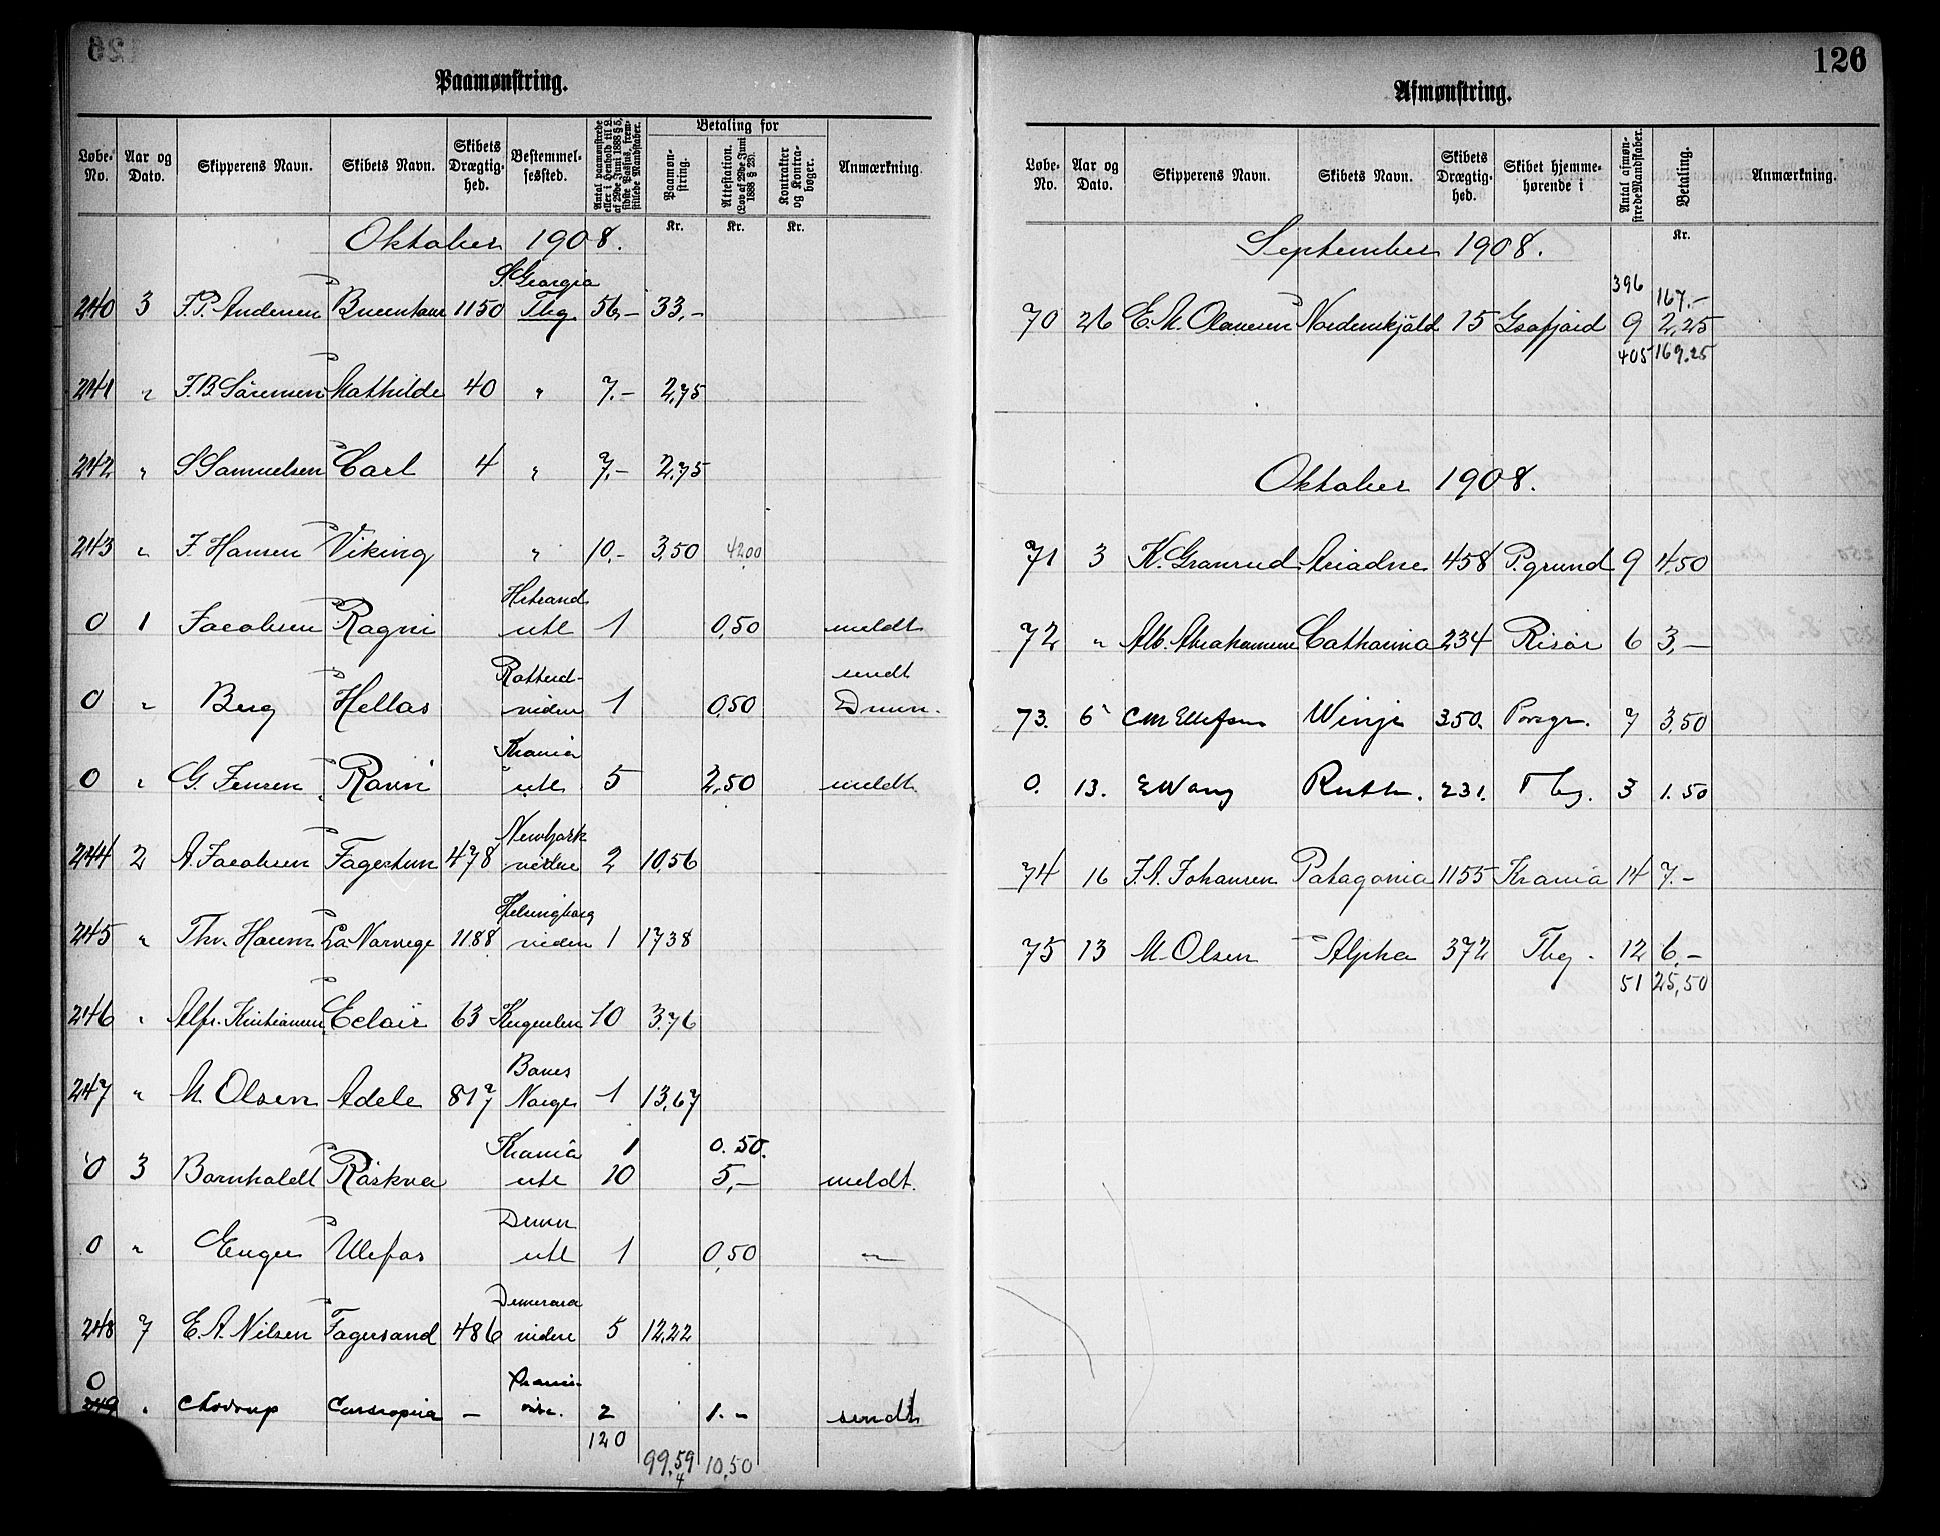 Paamønstring.
Løbe-No. | Aar og Dato. | Skipperens Navn. | Skibets Navn. | Skibets Drægtighed. | Bestemmelsessted. | Antal paamønstrede eller i Henhold til L. af 29de Juni 1888 § 5, sidste Passus, fremstillede Mandskaber. | Betaling for | Anmærkning.
Paamønstring. | Attestation. (Lov af 29de Juni 1888 § 23). | Kontrakter og Kontrabøger.
Kr. | Kr. | Kr.
Oktober 1908.
S. Georgia
240 | 3 | F. P. Andersen | 1150 | Tbg | 56,- | 33,-
241 | " | F. B. Sörensen | Mathilde | 40 | " | 7.- | 2,75
242 | " | S Samuelsen | Carl | 4 | " | 7.- | 2,75
243 | " | F. Hansen | Viking | " | 10.- | 3,50 | 42,00
0 | 1 | Jacobsen | Ragni | utl | 1 | 0,50 | meldt
sendt
0 | " | Berg | Hellas | videre | 1 | 0,50 | Dmn.
Krania
0 | " | G. Jensen | Ravn | utl | 5 | 2,50 | meldt
NewYork
244 | 2 | A. Jacobsen | Fagertun | 478 | videre | 2 | 10,56
Helsingborg
245 | " | La Norvege | 1188 | videre | 1 | 17,38
246 | " | Alfr. Kristiansen | Eclair | 63 | Kerguelen | 10 | 3,76
247 | " | M. Olsen | Adele | 817 | Norge | 1 | 13,67
Krania | 1 | 0.50.
0 | 3 | Bornholdt | Röskva | utl | 10 | 5,- | meldt.
Dmn
0 | " | Enger | Ulefos | utl | 1 | 0,50 | "
Demerara
248 | 7 | E. A. Nilsen | Fagersand | 486 | videre | 5 | 12,22
0
249 | " | - | 2 | 1.- | sendt
120
99,59 | 10,50
4
126
Afmønstring.
Løbe-No. | Aar og Dato. | Skipperens Navn. | Skibets Navn. | Skibets Drægtighed. | Skibet hjemmehørende i | Antal afmønstrede Mandskaber. | Betaling. | Anmærkning.
Kr.
September 1908.
396 | 167.-
70 | 26 | E. M. Olaussen | Nordenskjöld | 15 | 9 | 2,25
405 | 169.25
Oktober 1908.
71 | 3 | K. Granrud | Ariadne | 458 | P.grund | 9 | 4,50
72 | " | Alb. Abrahamsen | Catharina | 234 | Risör | 6 | 3,-
73. | 6 | C M Ellefsen | Winje | 350. | Porsgr. | 7 | 3,50
0. | 13. | E Wang | Ruth. | 231. | Tbg. | 3 | 1.50
74 | 16 | J. A. Johansen | Patagonia | 1155 | Krania | 14 | 7.-
75 | 13 | M Olsen | Alpha | 372 | Tbg. | 12 | 6,-
51 | 25,50